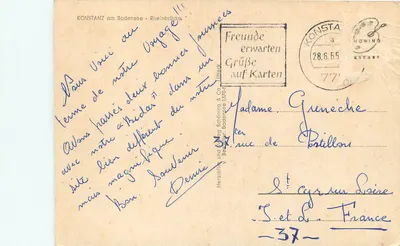 KONSTANZ am Bodensee - Rheinbrücke
Nous voici au
terme de notre voyage!!!
Avons passé deux bonnes journées
avec notre dans un
site bien différent du notre
mais magnifique.
Bon Souvenir
Denise
Freunde
erwarten
Grüße
auf Karten
KONSTANZ
a
28.6.65
77
Madame Greneche
ter
37 rue de Postillons
St Cyr sur Loire
I. et L. France
-37-